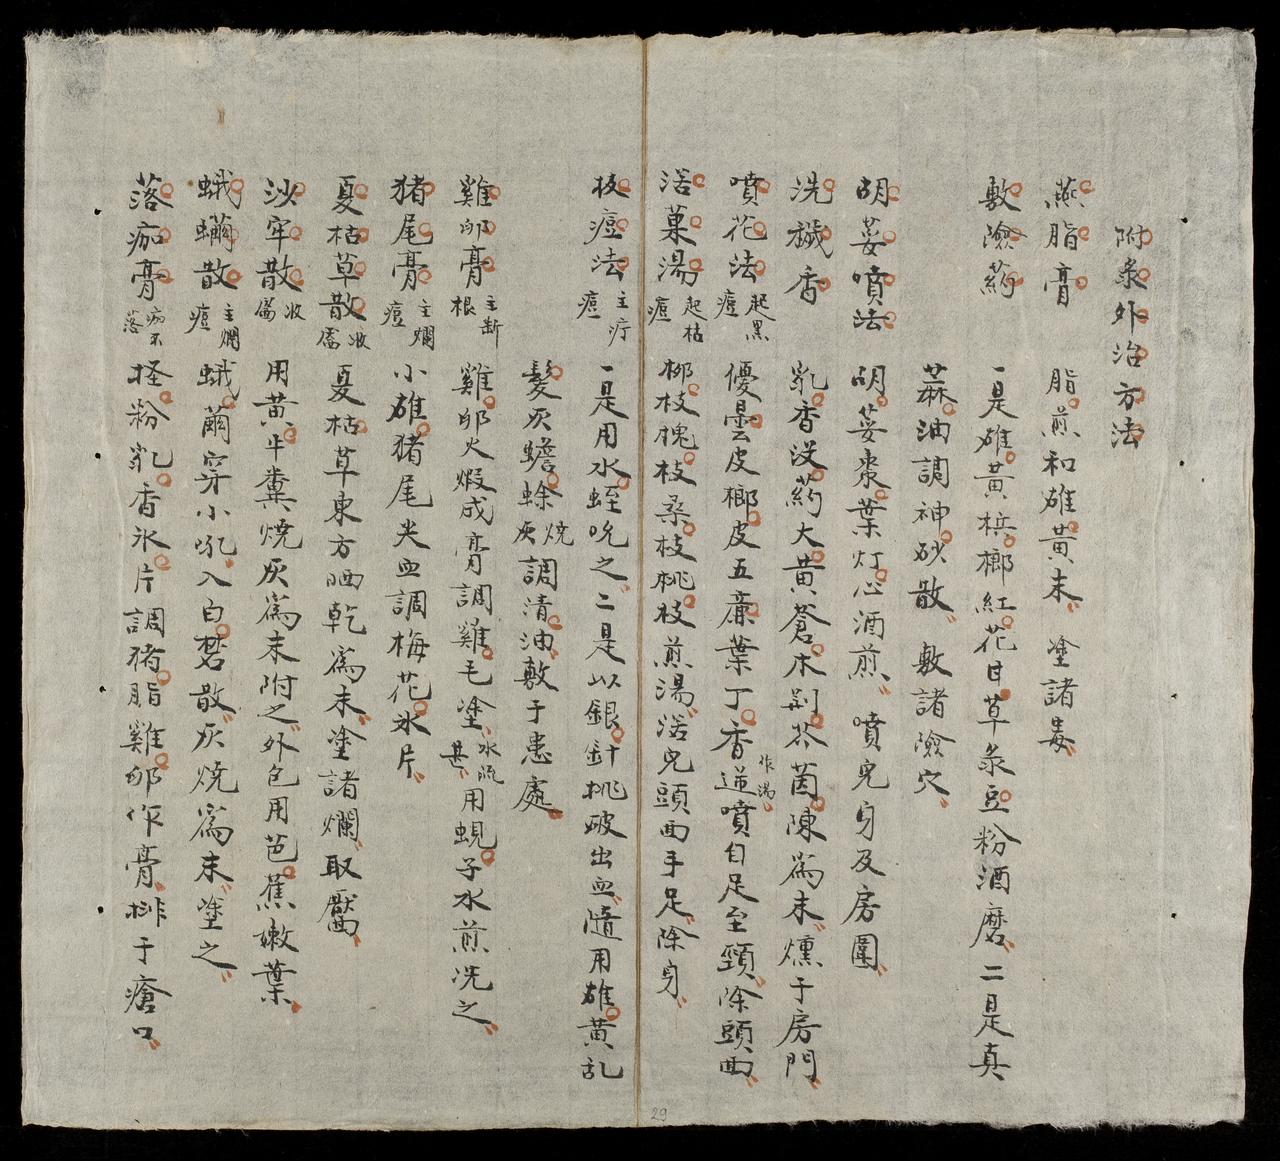 附彔外治方法
燕脂膏 脂煎和雄黃末塗諸毒
敷險药 一是雄黃梹榔紅花甘草彔豆粉酒磨二是真
蔴油調神砂散敷諸險穴
胡荽噴法 胡荽棗葉灯心酒煎噴兒身及房圍
洗穢香 乳香沒药大黃蒼朮荆芥茵陳爲末燻于房門
噴花法 起黑痘 優曇皮榔皮五亷葉丁香作湯逆噴自足至頸除頭面
浴菓湯 起枯痘 柳枝槐枝桑枝桃枝煎湯浴兒頭面手足除身
拔痘法 主疔痘 一是用水蛭吮之二是以銀針挑破出血隨用雄黃乱
髮灰蟾蜍燒灰調清油敷于患處
雞卵膏 主斷根 雞卵火煆成膏調雞毛塗水流甚用蜆子水煎洗之
猪尾膏 主爛痘 小雄猪尾尖血調梅花氷片
夏枯草散 收靨 夏枯草東方晒乾爲末塗諸爛取靨
沙牢散 收靨 用黃牛糞燒灰爲末附之外包用芭蕉嫩葉
蛾蠒散 主爛痘 蛾繭穿小孔入白礬散灰燒爲末塗之
落痂膏 痂不落 桎粉乳香氷片調猪脂雞卵作膏排于瘡口
29